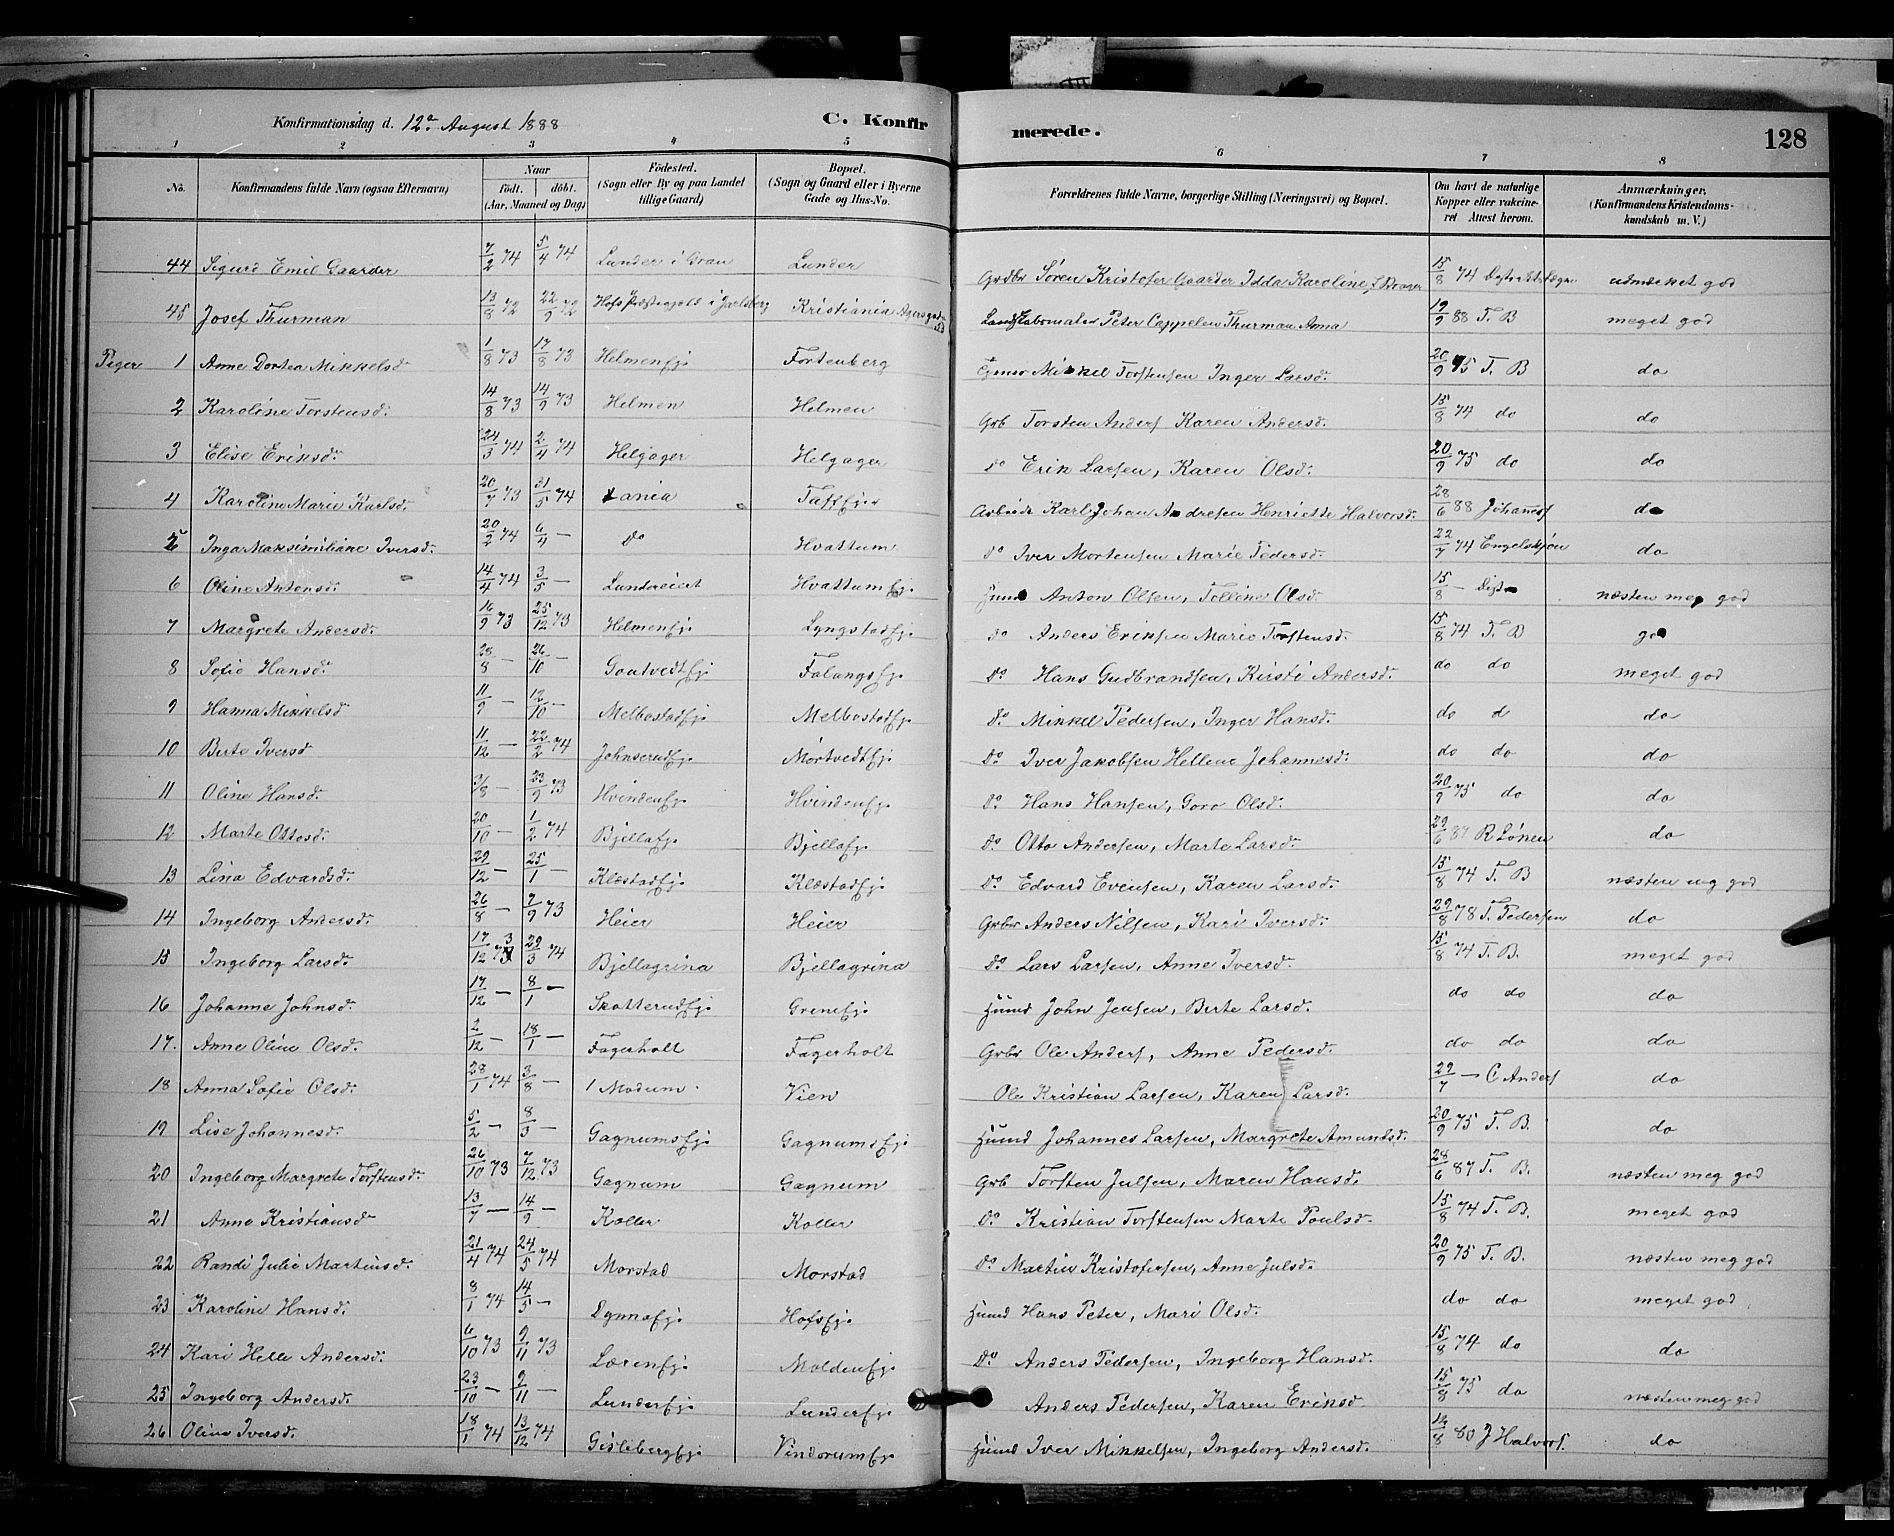 Konfirmationsdag d. 12te August 1888 C. Konfirmerede. 128
1 2 3 4 5 6 7 8
No. Konfirmandens fulde Navn (ogsaa Efternavn) Naar født. døbt. (Aar, Maaned og Dag) Fødested. (Sogn eller By og paa Landet tillige Gaard) Bopæl. (Sogn og Gaard eller i Byerne Gade og Hus-No. Forældrenes fulde Navne, borgerlige Stilling (Næringsvei) og Bopæl. Om havt de naturlige Kopper eller vakcineret Attest herom. Anmærkninger. (Konfirmandens Kristendomskundskab m. V.)
44 Sigurd Emil Gaarder 7/2 74 5/4 74 Lunder i Gran Lunder Grdbr Søren Kristofer Gaarder Idda Karoline 15/8 74 udmærket god
45 Josef Thurman 13/8 72 22/9 72 Hofs Præstegjeld i Jarlsberg Kristiania Landskabsmaler Peter Cappelen Thurman Anna 19/9 88 T. B meget god
Piger 1 Anne Dortea Mikkelsd 1/8 73 17/8 73 Helmenej. Fortenberg Mikkel Torstensen Inger Larsd. 20/9 75 T. B do
2 Karoline Torstensd. 14/8 73 14/9 73 Helmen Helmen Grb Torsten Anders Karen Andersd. 15/8 74 do do
3 Elise Eriksd. 24/3 74 2/4 74 Helgager Helgager do Erik Larsen, Karen Olsd. 20/9 75 do do
4 Karoline Marie Karlsd. 20/7 73 31/5 74 Xania Arbeide Karl Johan Andresen Henriette Halvorsd. 28/6 88 Johanes do
5 Inga Maksimiliane Iversd. 20/2 74 6/4 — do Hvattum do Iver Mortensen Marie Pedersd. 22/7 74 Engelskjøn do
6 Oline Antonsd. 14/4 74 3/5 — Lundreiet Hvattumej. Husmd Anton Olsen, Olsd. 15/8 — Dist næsten meg god
7 Margrete Andersd. 16/9 73 25/12 73 Helmenej. Lyngstadej. do Anders Eriksen Marie Torstensd. 15/8 74 T. B god
8 Sofie Hansd. 28/8 — 26/10 — Gautvedtej. Falangsej. do Hans Gudbrandsen, Kirsti Andersd. do do meget god
9 Hanna Mikkelsd 11/9 — 12/10 — Melbostadej. Melbostadej. do Mikkel Pedersen, Inger Hansd. do d do
10 Berte Iversd 11/12 — 22/2 74 Johnserudej. Mørtvedtej. do Iver Jakobsen Hellene Johannesd. do do do
11 Oline Hansd. 3/8 — 23/9 73 Hvindenej. Hvindenej. do Hans Hansen, Goro Olsd. 20/9 75 do do
12 Marte Ottosd. 20/10 — 1/2 74 Bjellaej. Bjellaej. do Otto Andersen, Marte Larsd. 29/6 87 R Lønen do
13 Lina Edvardsd. 29/12 — 25/1 — Klæstadej. Klæstadej. do Edvard Evensen, Karen Larsd. 15/8 74 T. B næsten mg god
14 Ingeborg Andersd. 26/8 — 7/9 73 Heier Heier Grbr Anders Nilsen, Kari Iversd. 29/8 78 T. Pedersen do
15 Ingeborg Larsd. 17/12 73 29/3 74 Bjellagrina Bjellagrina do Lars Larsen, Anne Iversd. 15/8 74 T. B. meget god
16 Johanne Johnsd. 17/12 — 8/1 — Skatterudej. Grenej. Husmd John Jensen, Berte Larsd. do do do
17. Anne Oline Olsd. 2/12 — 18/1 — Fagerholt Fagerholt Grbr Ole Anders, Anne Pedersd. do do do
18 Anna Sofie Olsd. 28/1 74 3/8 — 1 Modum Vien Ole Kristian Larsen, Karen Larsd. 29/7 — C Anders do
19 Lise Johannesd. 5/2 — 8/3 — Gagnumsej. Gagnumsej. Husmd Johannes Larsen, Margrete Amundsd. 20/9 75 T. B. do
20 Ingeborg Margrete Torstensd. 26/10 73 7/12 73 Gagnum Gagnum Grb Torsten Julsen, Maren Hansd. 28/6 87 T. B. næsten meg god
21 Anne Kristiansd 13/7 — 14/9 — Koller Koller do Kristian Torstensen Marte Poulsd. 15/8 74 T. B. meget god
22 Randi Julie Martinsd. 21/4 74 24/5 74 Morstad Morstad do Martin Kristofersen, Anne Julsd. 20/9 75 T. B. næsten meg god
23 Karoline Hansd. 8/1 74 14/5 — Dynnaej. Hofsej. Husmd Hans Peter, Mari Olsd. do do meget god
24 Kari Helle Andersd. 6/10 73 9/11 73 Lærenej. Moldenej. do Anders Pedersen, Ingeborg Hansd. 15/8 74 do do
25 Ingeborg Andersd. 23/10 — 9/11 — Lunderej. Lunderej. Anders Pedersen, Karen Eriksd 15/8 75 do næsten meg god
26 Oline Iversd. 18/1 74 13/12 74 Gislebergej. Vindorumej. Husmd Iver Mikkelsen, Ingeborg Andersd. 80 J Halvors. do